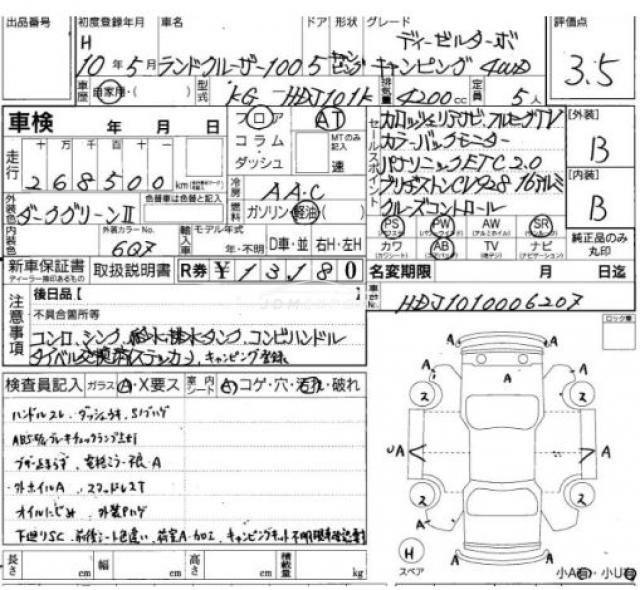 出品番号 初度登録年月 車名 ドア 形状 グレード 評価点
H ディーゼルターボ
10年5月 ランドクルーザー100 5 キャンピング 4WD 3.5
車歴 自家用・( ) 型式 KG-HDJ101K 排気量 4200cc 定員 5人
車検 年 月 日 フロア AT
走行 十 万 千 百 十 一 コラム・ダッシュ MTのみ記入 速
268500 km
セールスポイント
カロッツェリアナビ、フルセグTV
カラーバックモニター
パナソニックETC2.0
ブリヂストンCV928 16アルミ
クルーズコントロール
[外装]
B
[内装]
B
冷房 AAC
外装色 ダークグリーンII 色替車は色替と記入 燃料 ガソリン・軽油( )
内装色 外装カラーNo. 6Q7 輸入車 モデル年式 年・不明 D車・並 右H・左H
PS PW AW SR
カワ AB TV ナビ
純正品のみ丸印
新車保証書 取扱説明書 R券 ¥13180
ディーラー捺印あるもの
名変期限 月 日迄
車台No. HDJ1010006207
注意事項 後日品【 】
不具合箇所等
コンロ、シンク、給水・排水タンク、コンビハンドル
タイベル交換済(ステッカー)、キャンピング登録
ロック車
検査員記入 ガラス A・X要ス 室内シート A コゲ・穴・汚れ・破れ
ハンドルスレ・ダッシュウキ、Sリハゲ
ABS
外ホイルA、スタッドレスT
オイルにじみ 外装Pハゲ
下廻りSC、前後シート色違い、荷室A・加工、
長さ cm 幅 cm 高さ cm 積載量 kg
A A A
2 2
UA A
2 2
A A
H
スペア
小A有 小U有